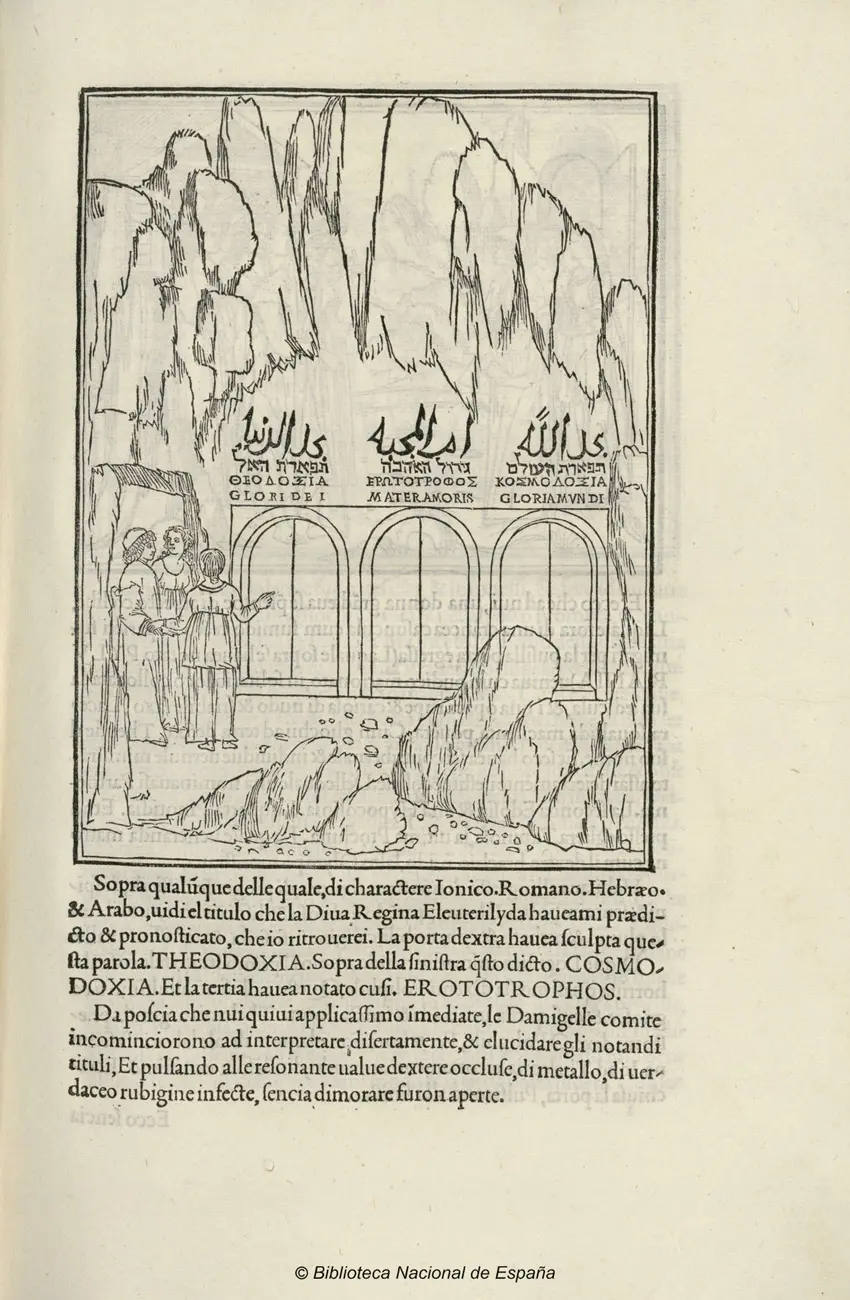 الدنيا أم المحبة الله
תפארת האל האהבה תפארת העולם
ΘΕΟΔΟΞΙΑ ΕΡΩΤΟΤΡΟΦΟΣ ΚΟΣΜΟΔΟΞΙΑ
GLORI DEI MATER AMORIS GLORIA MVNDI
Sopra qualũque delle quale, di charactere Ionico. Romano. Hebræo.
& Arabo, uidi el titulo che la Diua Regina Eleuterilyda haueami prædi-
cto & pronosticato, che io ritrouerei. La porta dextra hauea sculpta que-
sta parola. THEODOXIA. Sopra della sinistra q̃sto dicto. COSMO-
DOXIA. Et la tertia hauea notato cusi. EROTOTROPHOS.
Da poscia che nui quiui applicassimo ĩmediate, le Damigelle comite
incominciorono ad interpretare disertamente, & elucidare gli notandi
tituli, Et pulsando alle resonante ualue dextere occluse, di metallo, di uer-
daceo rubigine infecte, sencia dimorare furon aperte.
© Biblioteca Nacional de España